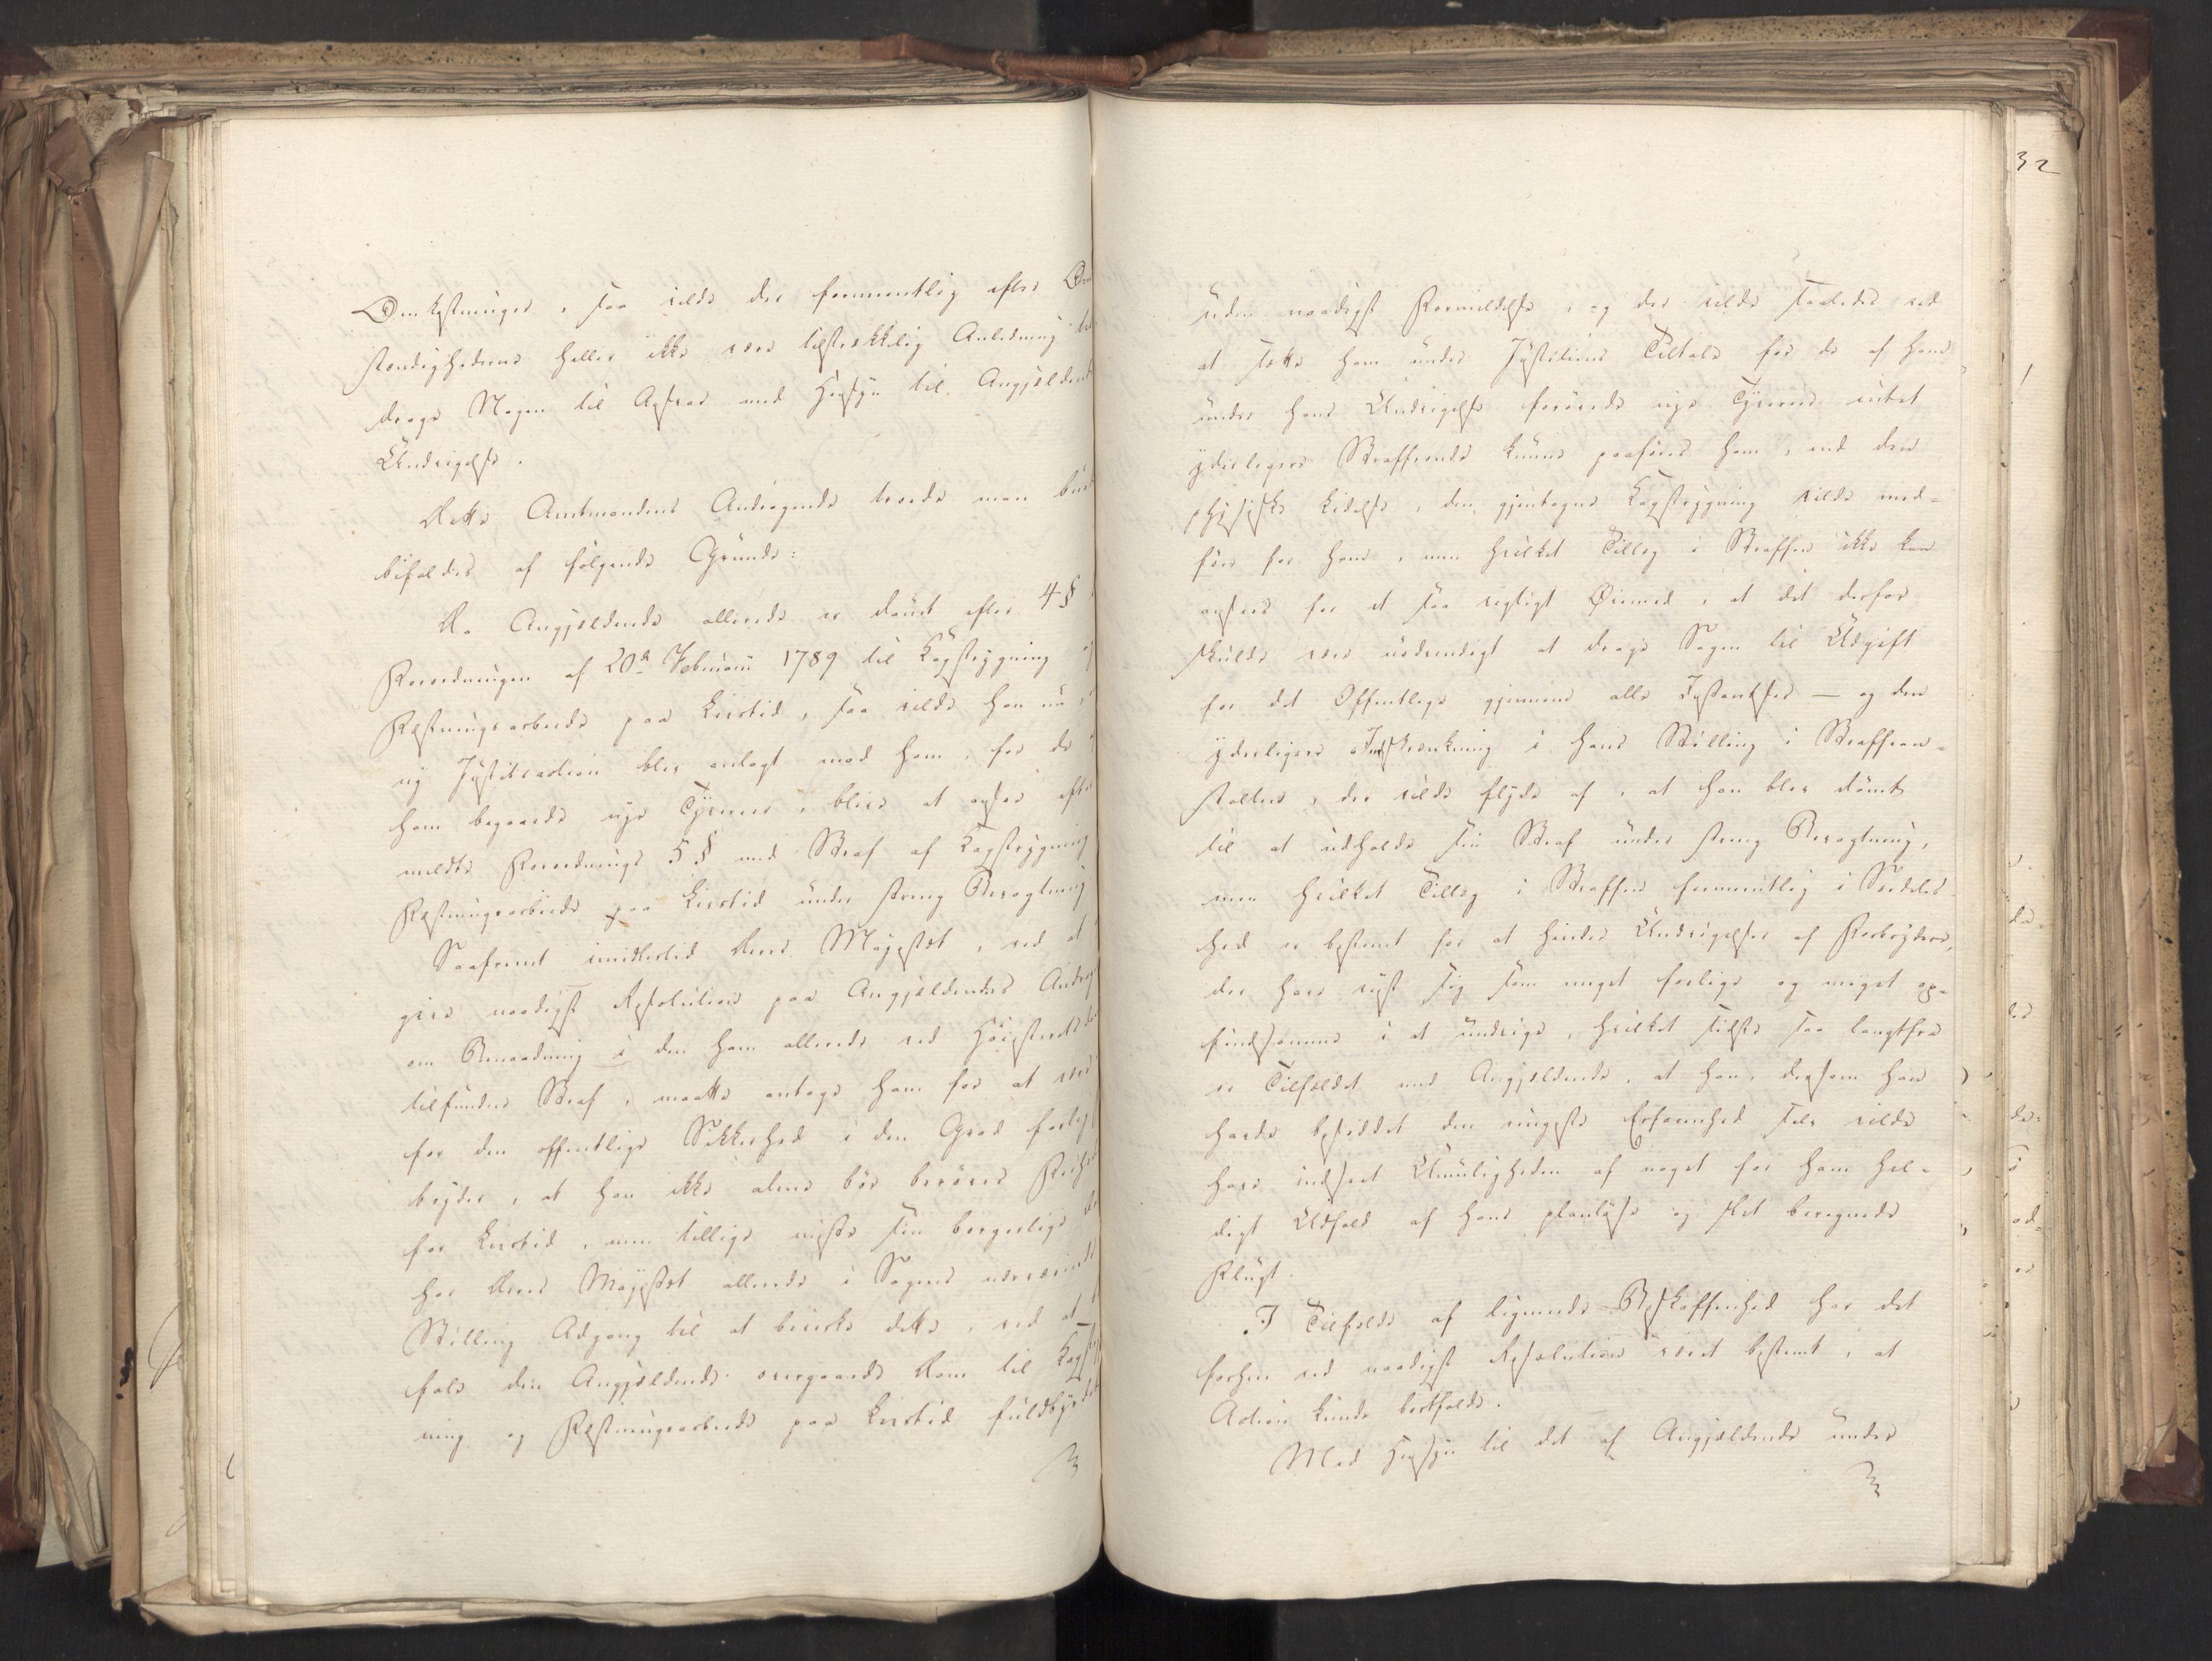 Omkostninger, saa vilde der formeentlig efter Om
stændighederne heller ikke være tilstrækkelig Anledning til
drage Nogen til Ansvar med Hensyn til Angjældende
Undvigelse.
Dette Amtmandens Andragende troede man bur
bifaldes af følgende Grunde:
Da Angjældende allerede er dømt efter 4 §
Forordningen af 20de Februarii 1789 til Kagstrygning og
Fæstningsarbeide paa Livstid, saa vilde han nu,
ny Justitsaction blev anlagt mod ham, for de
ham begaaede nye Tyverier, blive at ansee efter
meldte Forordnings 5 § med Straf af Kagstrygning
Fæstningsarbeide paa Livstid under streng Bevogtning
Saafremt imidlertid Deres Majestæt, ved at
give naadigst Resolution paa Angjældendes Andrag
om Benaadning i den ham allerede ved Høiesteret
tilfundne Straf, maatte antage ham for at være
for den offentlige Sikkerhed i den Grad farlig
bryder, at han ikke alene bør berøves Frihed
for Livstid, men tillige miste sin borgerlige
har Deres Majestæt allerede i Sagens nærværende
Stilling Adgang til at bevirke dette, ved at
falde den Angjældende overgaaede Dom til Kagstryg
ning og Fæstningsarbeide paa Livstid fuldbyrdet
32
uden naadigst Formildelse, og der vilde saaledes ved
at sætte ham under Justitiens Tiltale for de af ham
under hans Undvigelse forøvede nye Tyverier intet
yderligere Straffende kunne paaføres ham, end den
physiske Lidelse, den gjentagne Kagstrygning vilde med-
føre for ham, men hvilket Tillæg i Straffen ikke kan
ansees for et saa vigtigt Øiemed, at det derfor
skulde være nødvendigt at drage Sagen til Udgift
for det Offentlige gjennem alle Instantser — og den
yderligere Indskrænkning i hans Stilling i Straffean-
stalten, der vilde flyde af, at han blev dømt
til at udholde sin Straf under streng Bevogtning,
men hvilket Tillæg i Straffen formeentlig i Særdeles-
hed er bestemt for at hindre Undvigelser af Forbrydere,
der have viist sig som meget farlige og meget op-
findsomme i at undvige, hvilket sidste saa langtfra
er Tilfældet med Angjældende, at han, dersom han
havde besiddet den ringeste Erfarenhed selv vilde
have indseet Umuligheden af noget for ham hel-
digt Udfald af hans planløse og slet beregnede
Flugt.
I Tilfælde af lignende Beskaffenhed har det
forhen ved naadigst Resolution været bestemt, at
Action kunde bortfalde.
Med Hensyn til det af Angjældende under